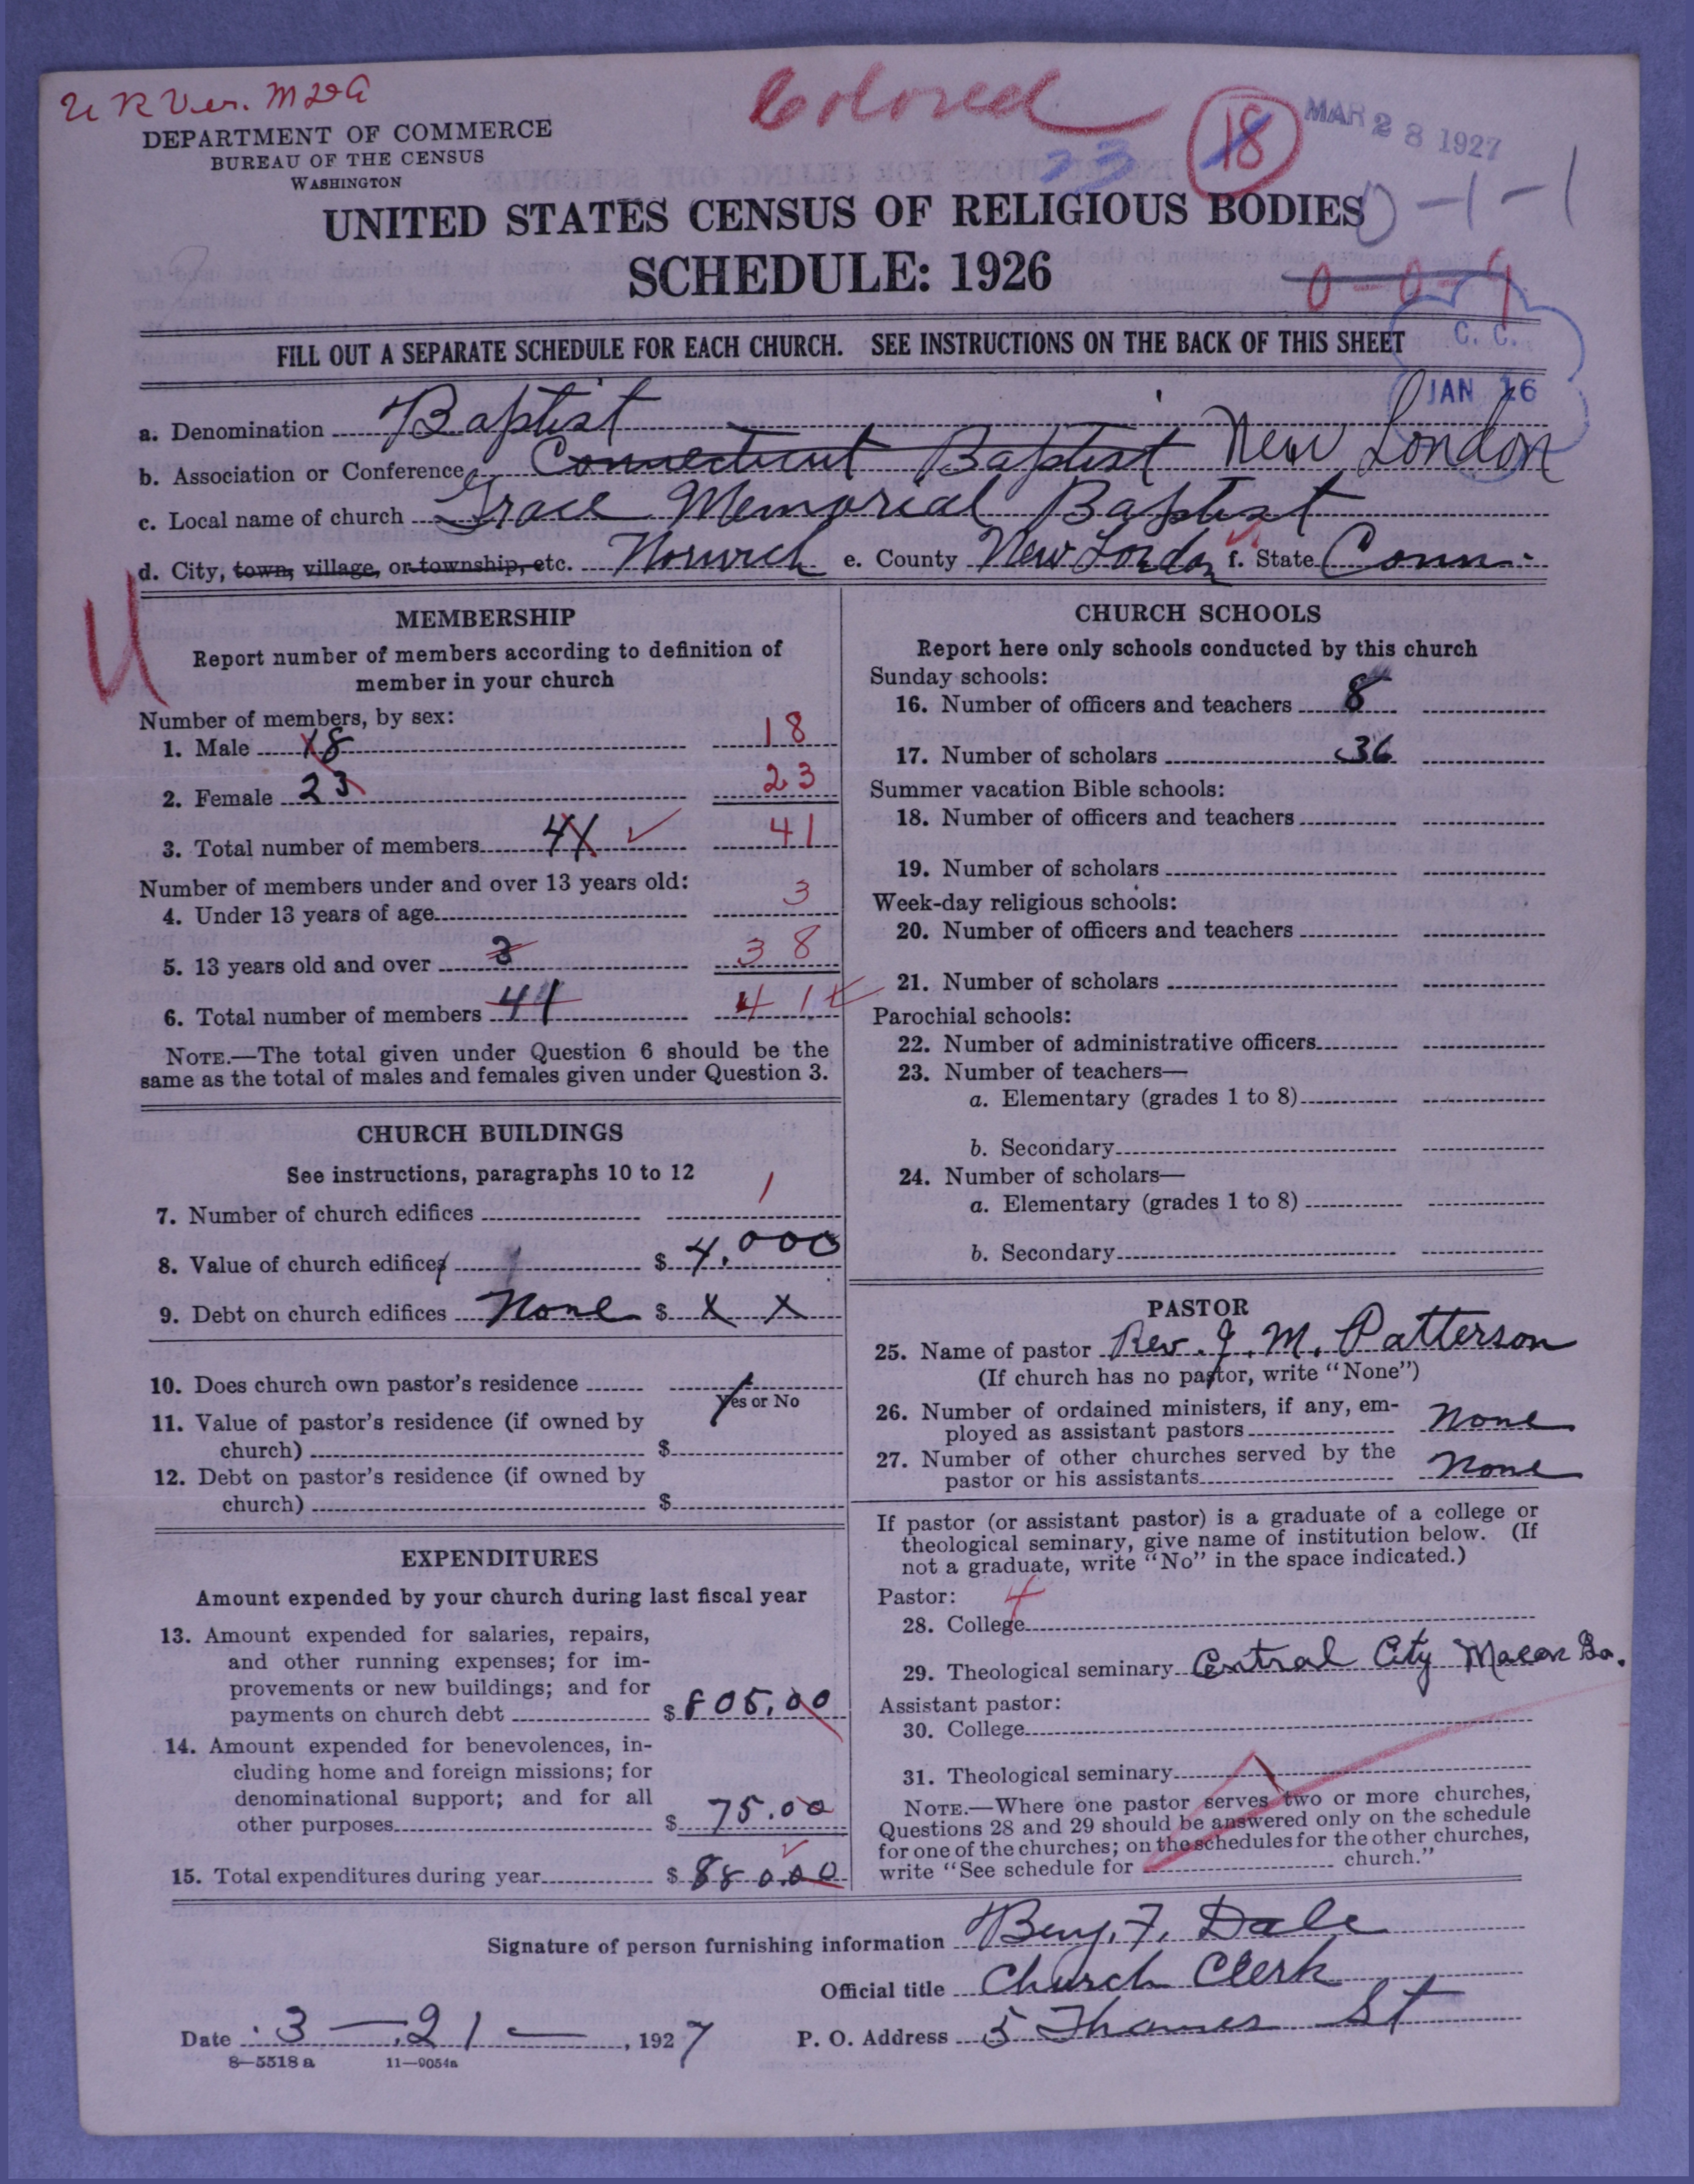 U R Ver. M
Colored
18
23
MAR 28 1927
0-1-1
0-0-1
DEPARTMENT OF COMMERCE
BUREAU OF THE CENSUS
WASHINGTON
UNITED STATES CENSUS OF RELIGIOUS BODIES
SCHEDULE: 1926
C. C.
JAN 16
FILL OUT A SEPARATE SCHEDULE FOR EACH CHURCH. SEE INSTRUCTIONS ON THE BACK OF THIS SHEET
a. Denomination Baptist
b. Association or Conference Connecticut Baptist New London
c. Local name of church Grace Memorial Baptist
d. City, town, village, or township, etc. Norwich e. County New London f. State Conn.
U
MEMBERSHIP
Report number of members according to definition of
member in your church
Number of members, by sex:
1. Male 18 18
2. Female 23 23
3. Total number of members 41 41
Number of members under and over 13 years old:
4. Under 13 years of age 3
5. 13 years old and over 3 38
6. Total number of members 41 41
NOTE.—The total given under Question 6 should be the
same as the total of males and females given under Question 3.
CHURCH BUILDINGS
See instructions, paragraphs 10 to 12
7. Number of church edifices 1
8. Value of church edifices $ 4,000
9. Debt on church edifices None $ x x
10. Does church own pastor's residence
Yes or No
11. Value of pastor's residence (if owned by
church) $
12. Debt on pastor's residence (if owned by
church) $
EXPENDITURES
Amount expended by your church during last fiscal year
13. Amount expended for salaries, repairs,
and other running expenses; for im-
provements or new buildings; and for
payments on church debt $ 805.00
14. Amount expended for benevolences, in-
cluding home and foreign missions; for
denominational support; and for all
other purposes $ 75.00
15. Total expenditures during year $ 880.00
CHURCH SCHOOLS
Report here only schools conducted by this church
Sunday schools:
16. Number of officers and teachers 8
17. Number of scholars 36
Summer vacation Bible schools:
18. Number of officers and teachers
19. Number of scholars
Week-day religious schools:
20. Number of officers and teachers
21. Number of scholars
Parochial schools:
22. Number of administrative officers
23. Number of teachers—
a. Elementary (grades 1 to 8)
b. Secondary
24. Number of scholars—
a. Elementary (grades 1 to 8)
b. Secondary
PASTOR
25. Name of pastor Rev. J. M. Patterson
(If church has no pastor, write "None")
26. Number of ordained ministers, if any, em-
ployed as assistant pastors None
27. Number of other churches served by the
pastor or his assistants None
If pastor (or assistant pastor) is a graduate of a college or
theological seminary, give name of institution below. (If
not a graduate, write "No" in the space indicated.)
Pastor: 4
28. College
29. Theological seminary Central City Macon Ga.
Assistant pastor:
30. College
31. Theological seminary
NOTE.—Where one pastor serves two or more churches,
Questions 28 and 29 should be answered only on the schedule
for one of the churches; on the schedules for the other churches,
write "See schedule for church."
Signature of person furnishing information Benj. F. Dale
Official title Church Clerk
Date 3—21—, 1927 P. O. Address 5 Thames St
8—5518 a 11—9054a